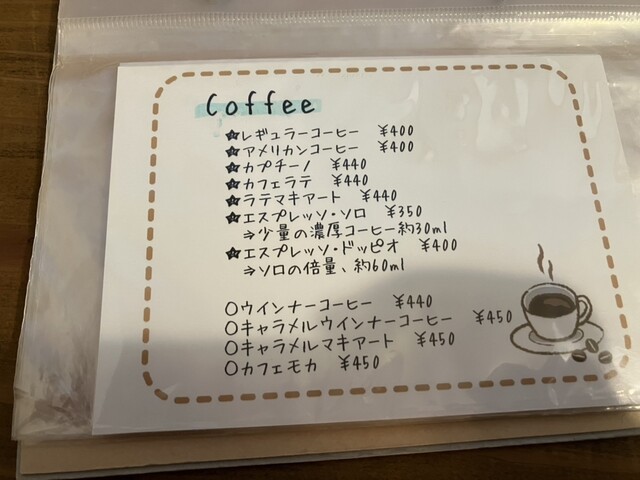 Coffee
★レギュラーコーヒー ¥400
★アメリカンコーヒー ¥400
★カプチーノ ¥440
★カフェラテ ¥440
★ラテマキアート ¥440
★エスプレッソ・ソロ ¥350
⇒少量の濃厚コーヒー約30ml
★エスプレッソ・ドッピオ ¥400
⇒ソロの倍量、約60ml
○ウインナーコーヒー ¥440
○キャラメルウインナーコーヒー ¥450
○キャラメルマキアート ¥450
○カフェモカ ¥450